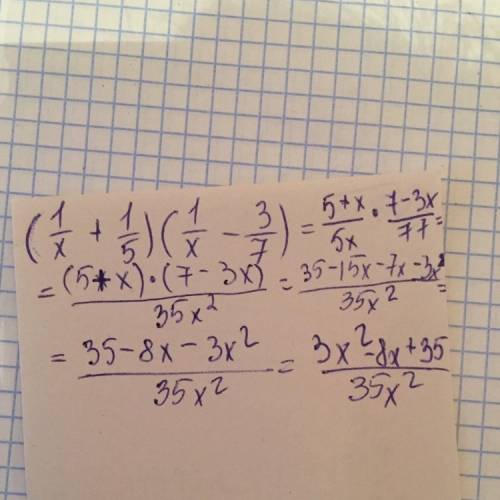 (1/x + 1/5)(1/x - 3/7) = 5+x/5x · 7-3x/77 =
= (5+x)·(7-3x)/35x² = 35-15x-7x-3x²/35x² =
= 35-8x-3x²/35x² = 3x²-8x+35/35x²